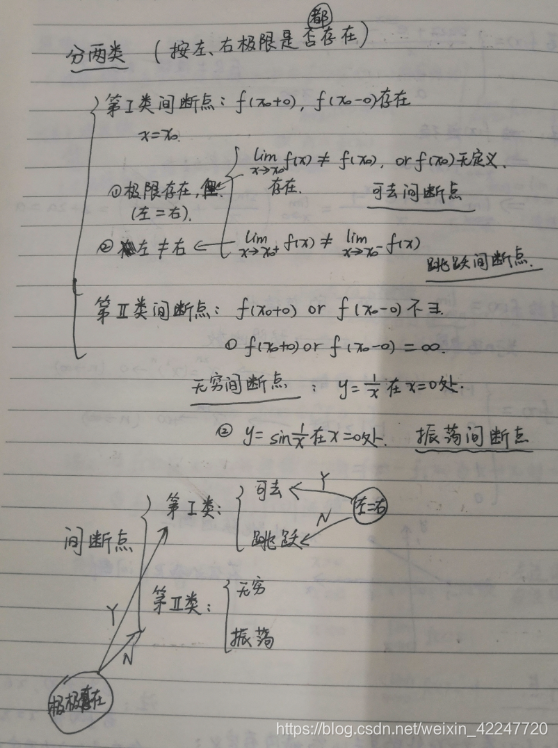 都
分两类 (按左、右极限是否存在)
第Ⅰ类间断点: f(x₀+0), f(x₀-0)存在
x=x₀.
lim x→x₀ f(x) ≠ f(x₀), or f(x₀)无定义.
①极限存在, 存在.
(左=右). 可去间断点
② 左≠右 ← lim x→x₀⁺ f(x) ≠ lim x→x₀⁻ f(x)
跳跃间断点.
第Ⅱ类间断点: f(x₀+0) or f(x₀-0)不∃.
① f(x₀+0) or f(x₀-0) = ∞.
无穷间断点: y=1/x 在x=0处.
② y=sin1/x 在x=0处. 振荡间断点
间断点
第Ⅰ类: 可去 Y 左=右
跳跃 N
第Ⅱ类: 无穷
振荡
Y
N
存在
https://blog.csdn.net/weixin_42247720